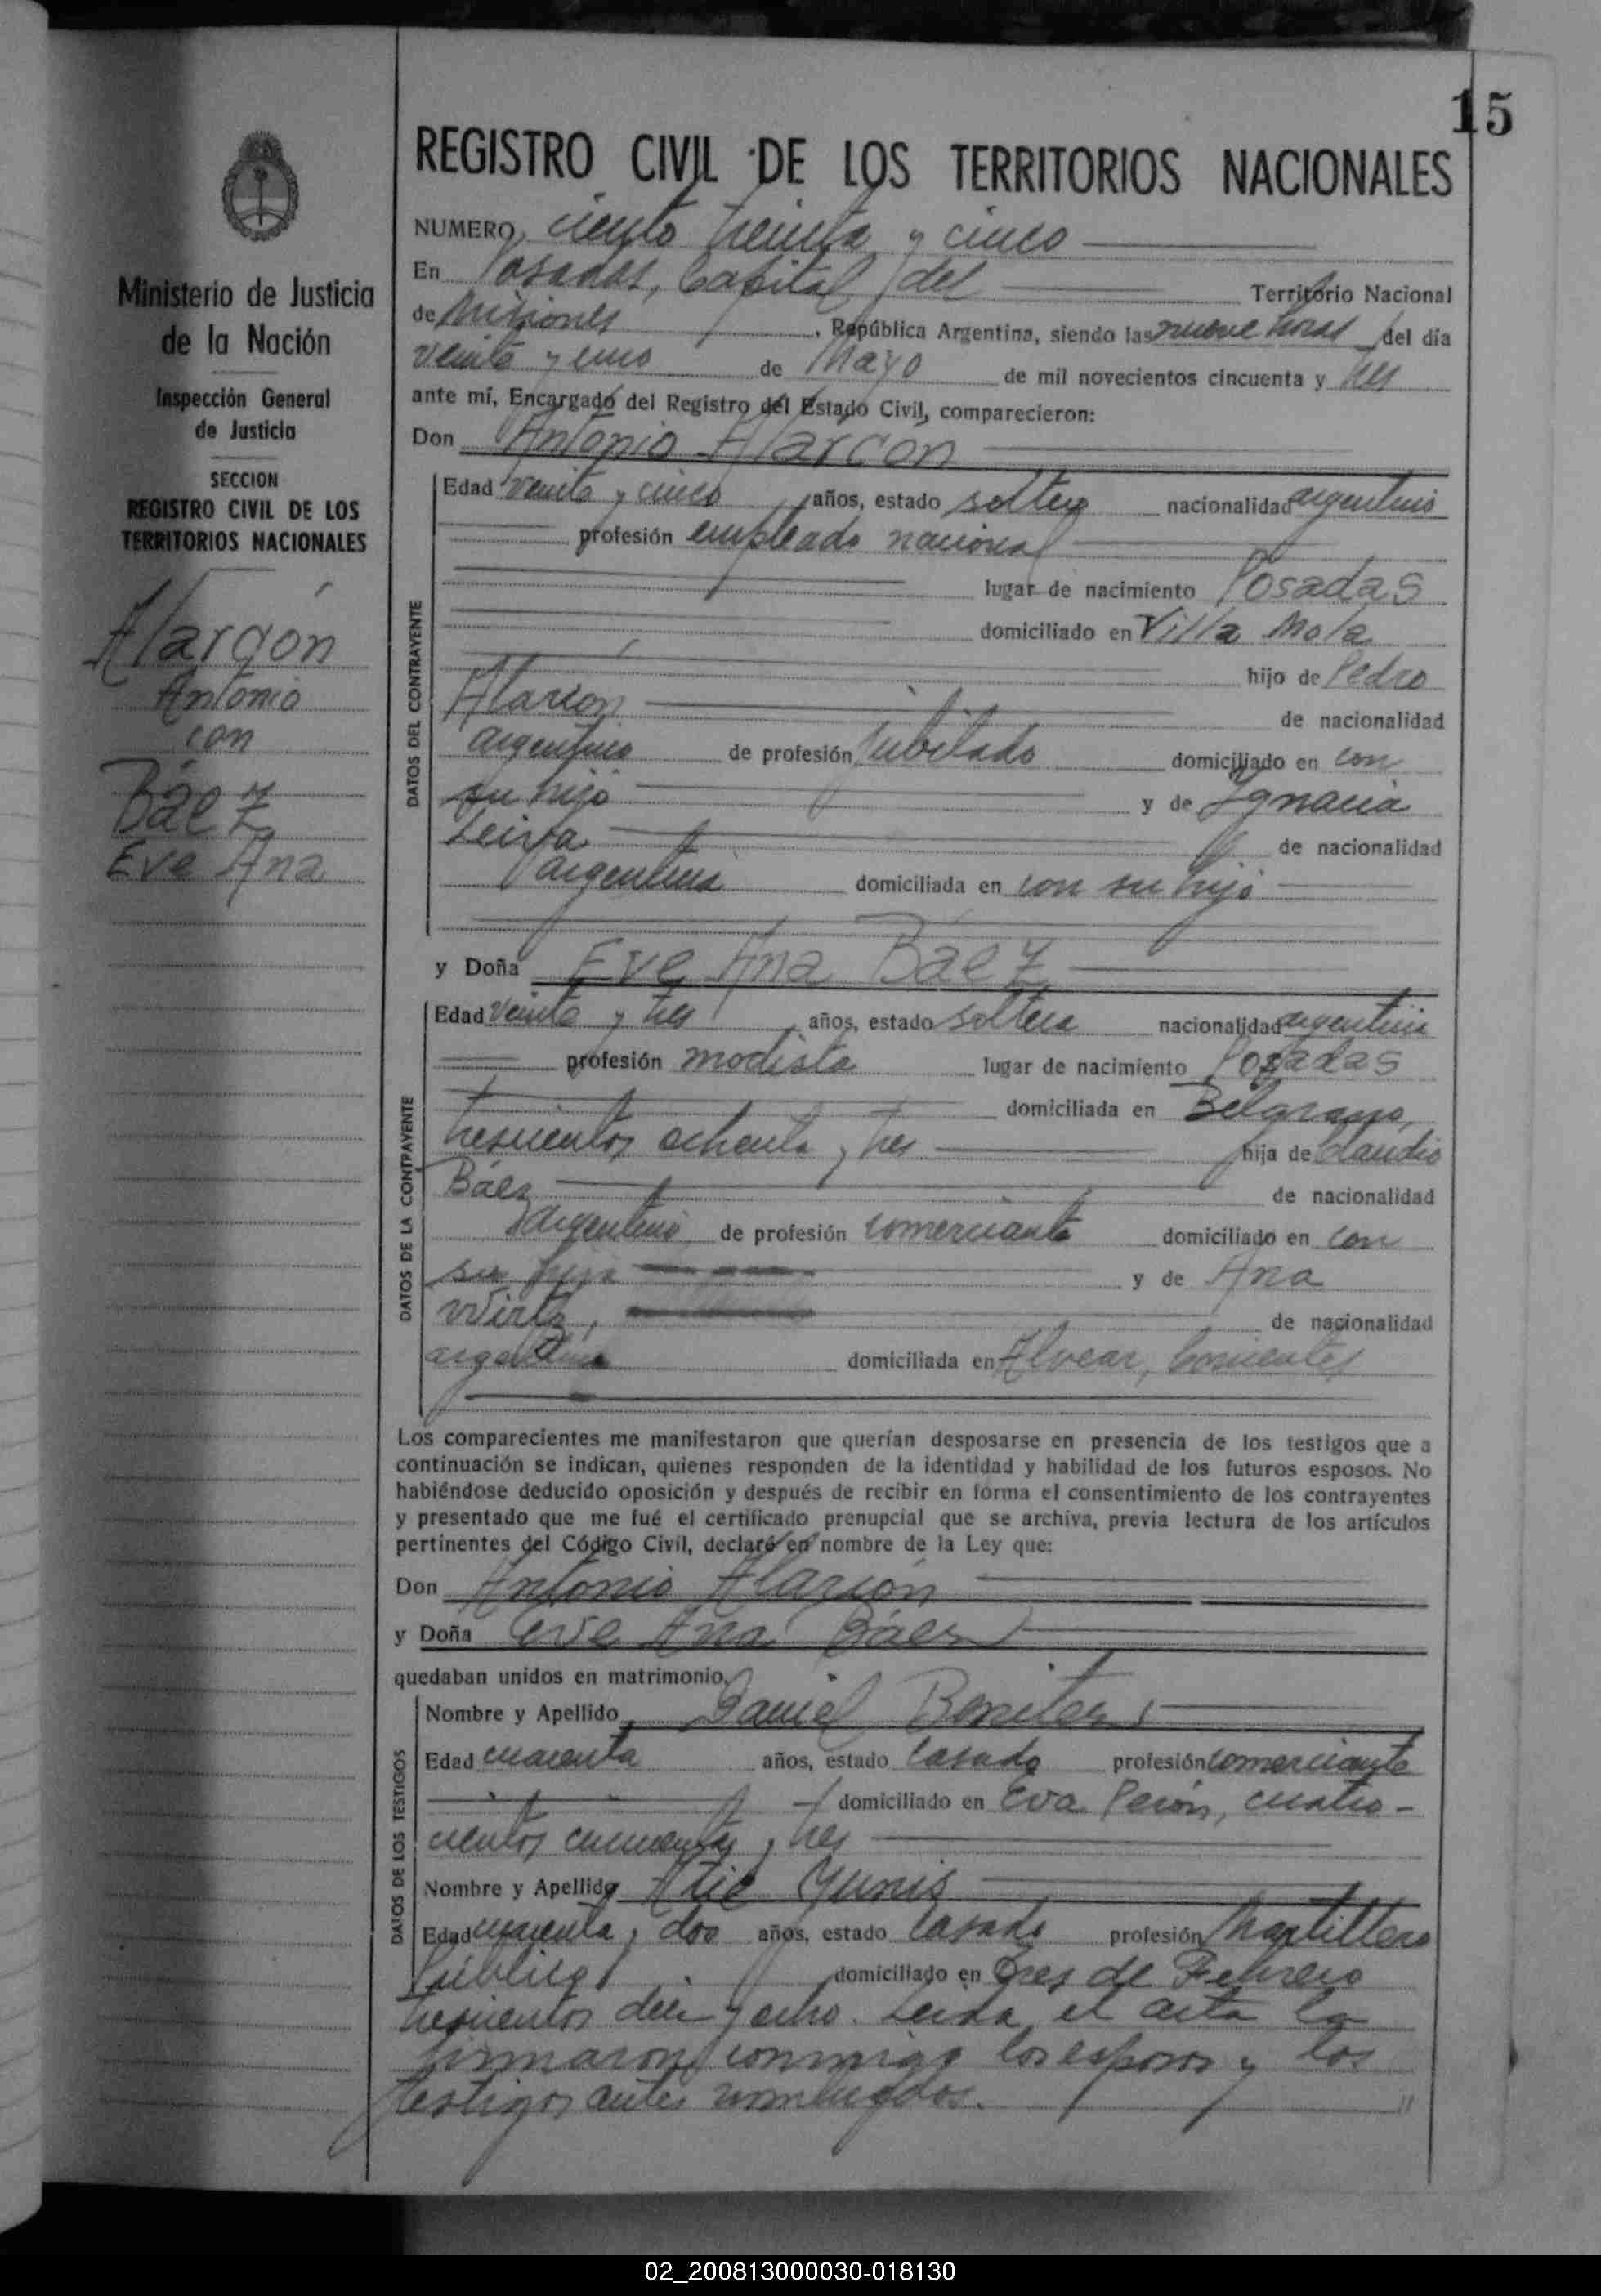 15
Ministerio de Justicia
de la Nación
Inspección General
de Justicia
SECCION
REGISTRO CIVIL DE LOS
TERRITORIOS NACIONALES
Alarcón
Antonio
con
Báez
Eve Ana
REGISTRO CIVIL DE LOS TERRITORIOS NACIONALES
NUMERO ciento treinta y cinco
En Posadas, Capital del Territorio Nacional
de Misiones, República Argentina, siendo las nueve horas del día
veinte y uno de Mayo de mil novecientos cincuenta y tres
ante mí, Encargado del Registro del Estado Civil, comparecieron:
Don Antonio Alarcón
DATOS DEL CONTRAYENTE
Edad veinte y cinco años, estado soltero nacionalidad argentino
profesión empleado nacional
lugar de nacimiento Posadas
domiciliado en Villa Mola
hijo de Pedro
Alarcón de nacionalidad
argentino de profesión jubilado domiciliado en con
su hijo y de Ygnacia
Leiva de nacionalidad
argentina domiciliada en con su hijo
y Doña Eve Ana Báez
DATOS DE LA CONTRAYENTE
Edad veinte y tres años, estado soltera nacionalidad argentina
profesión modista lugar de nacimiento Posadas
domiciliada en Belgrano,
trescientos ochenta y tres hija de Claudio
Báez de nacionalidad
argentino de profesión comerciante domiciliado en con
su hija y de Ana
Wirtz, de nacionalidad
argentina domiciliada en Alvear, Corrientes
Los comparecientes me manifestaron que querían desposarse en presencia de los testigos que a
continuación se indican, quienes responden de la identidad y habilidad de los futuros esposos. No
habiéndose deducido oposición y después de recibir en forma el consentimiento de los contrayentes
y presentado que me fué el certificado prenupcial que se archiva, previa lectura de los artículos
pertinentes del Código Civil, declaré en nombre de la Ley que:
Don Antonio Alarcón
y Doña Eve Ana Báez
quedaban unidos en matrimonio.
DATOS DE LOS TESTIGOS
Nombre y Apellido Daniel Benitez
Edad cuarenta años, estado casado profesión comerciante
domiciliado en Eva Perón, cuatro-
cientos cincuenta y tres
Nombre y Apellido Atie Yunis
Edad cuarenta y dos años, estado casado profesión Martillero
Público domiciliado en Tres de Febrero
trescientos diez y ocho. Leida el acta la
firmaron conmigo los esposos y los
testigos antes nombrados.
02_200813000030-018130